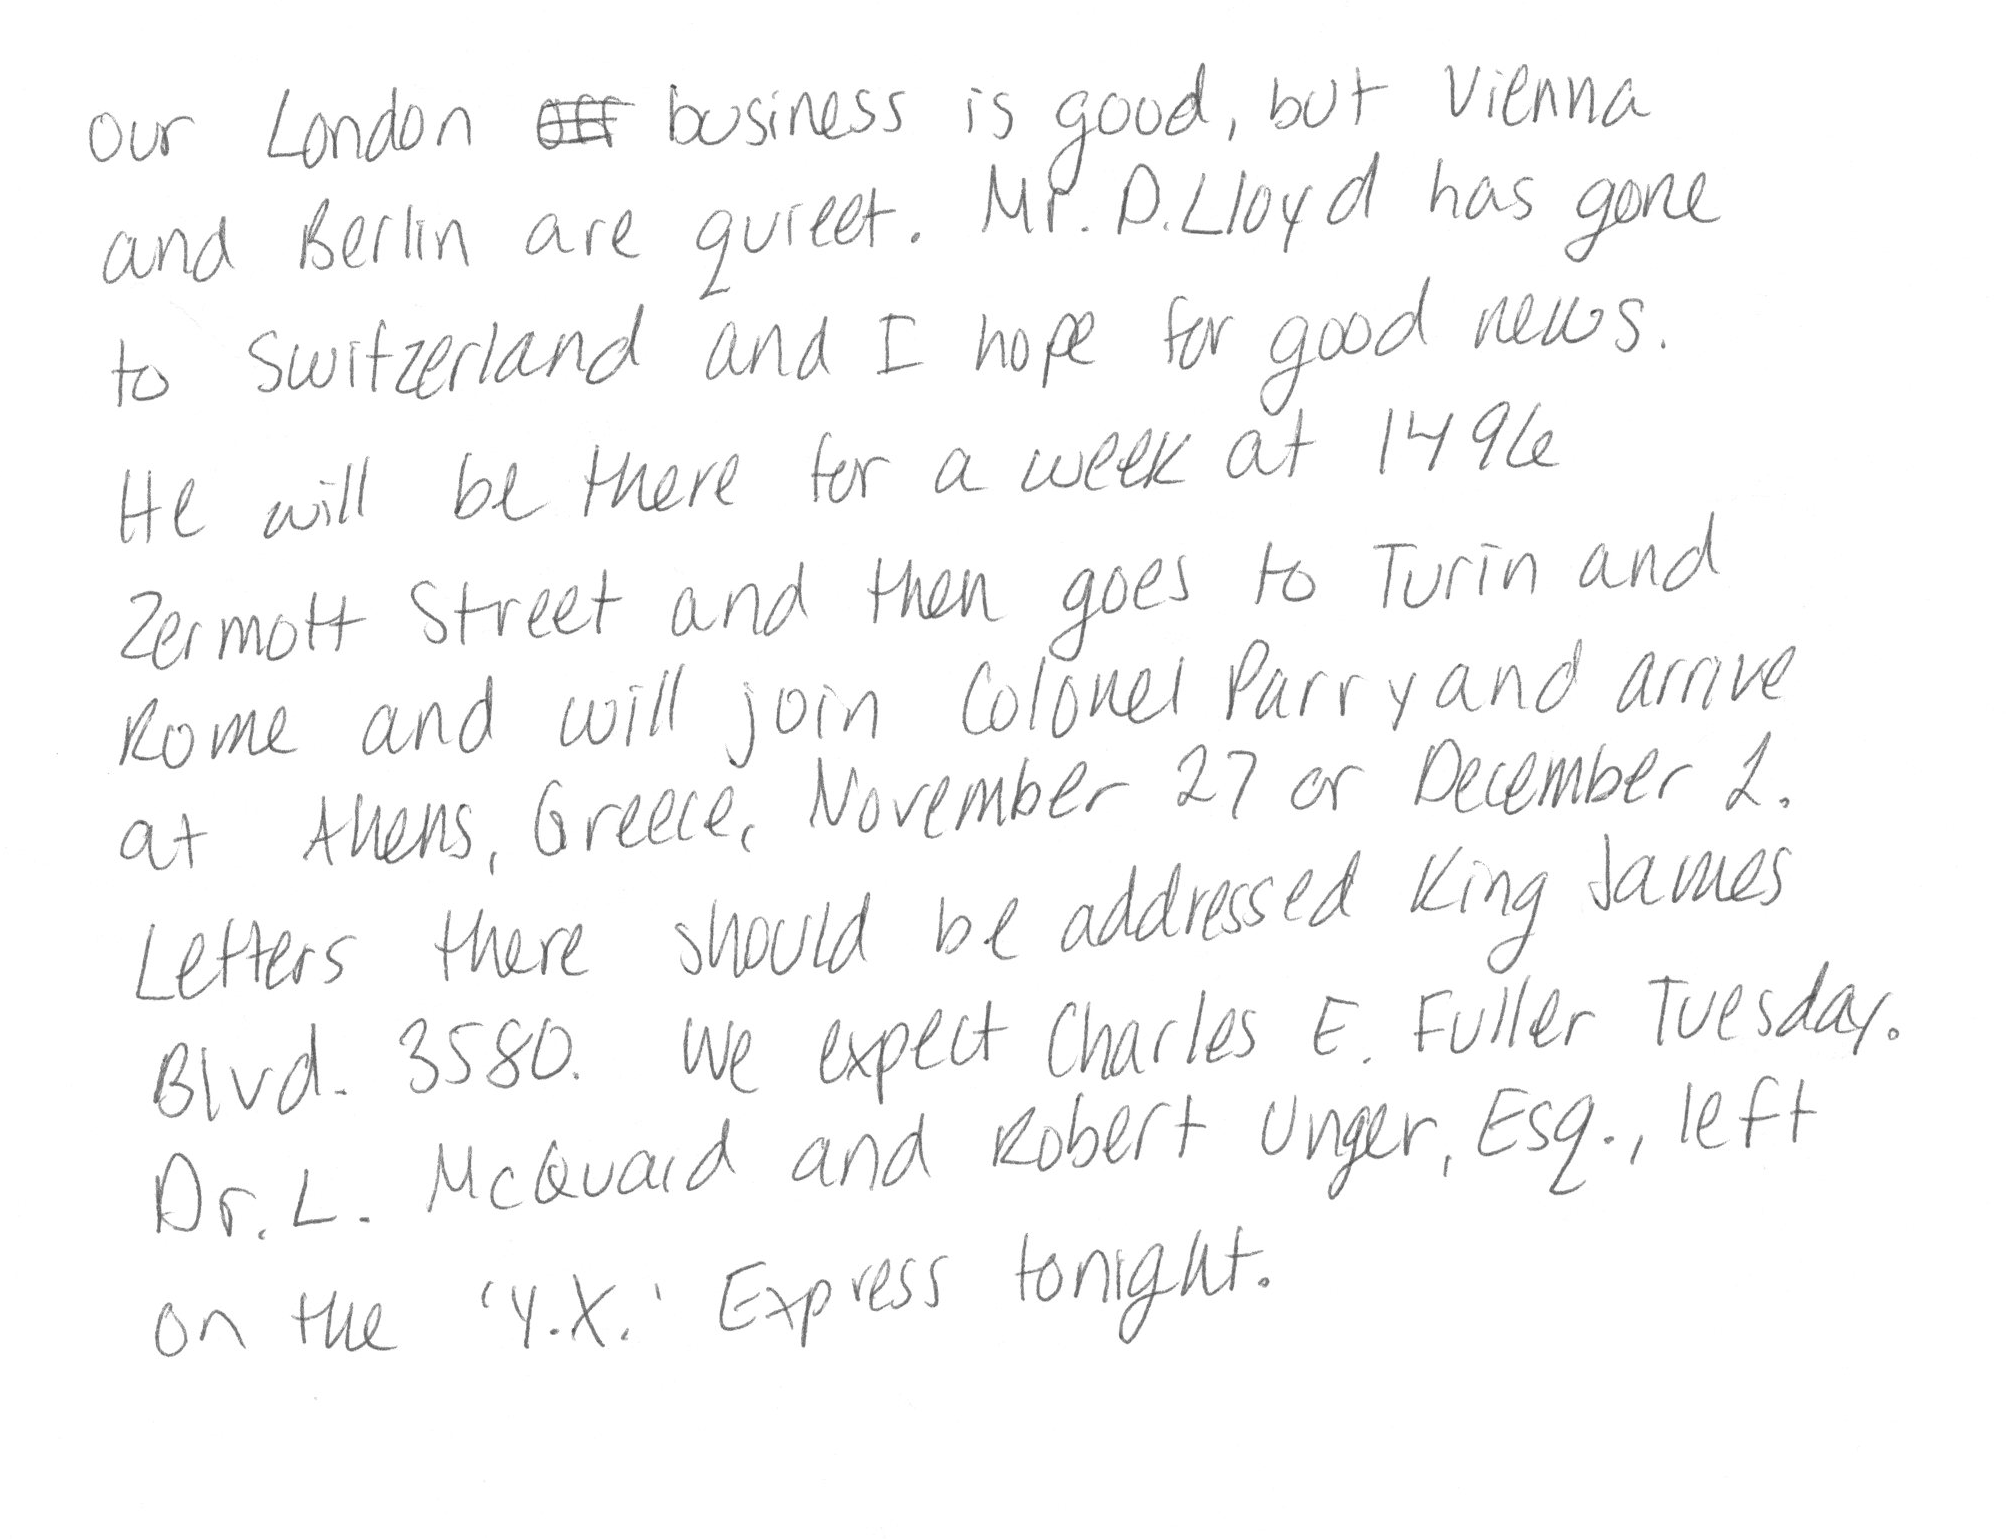 our London business is good, but Vienna
and Berlin are quieet. Mr. D. Lloyd has gone
to Switzerland and I hope for good news.
He will be there for a week at 1496
Zermott Street and then goes to Turin and
Rome and will join Colonel Parry and arrive
at Athens, Greece, November 27 or December 2.
Letters there should be addressed King James
Blvd. 3580. We expect Charles E. Fuller Tuesday.
Dr. L. McQuaid and Robert Unger, Esq., left
on the 'Y.X.' Express tonight.